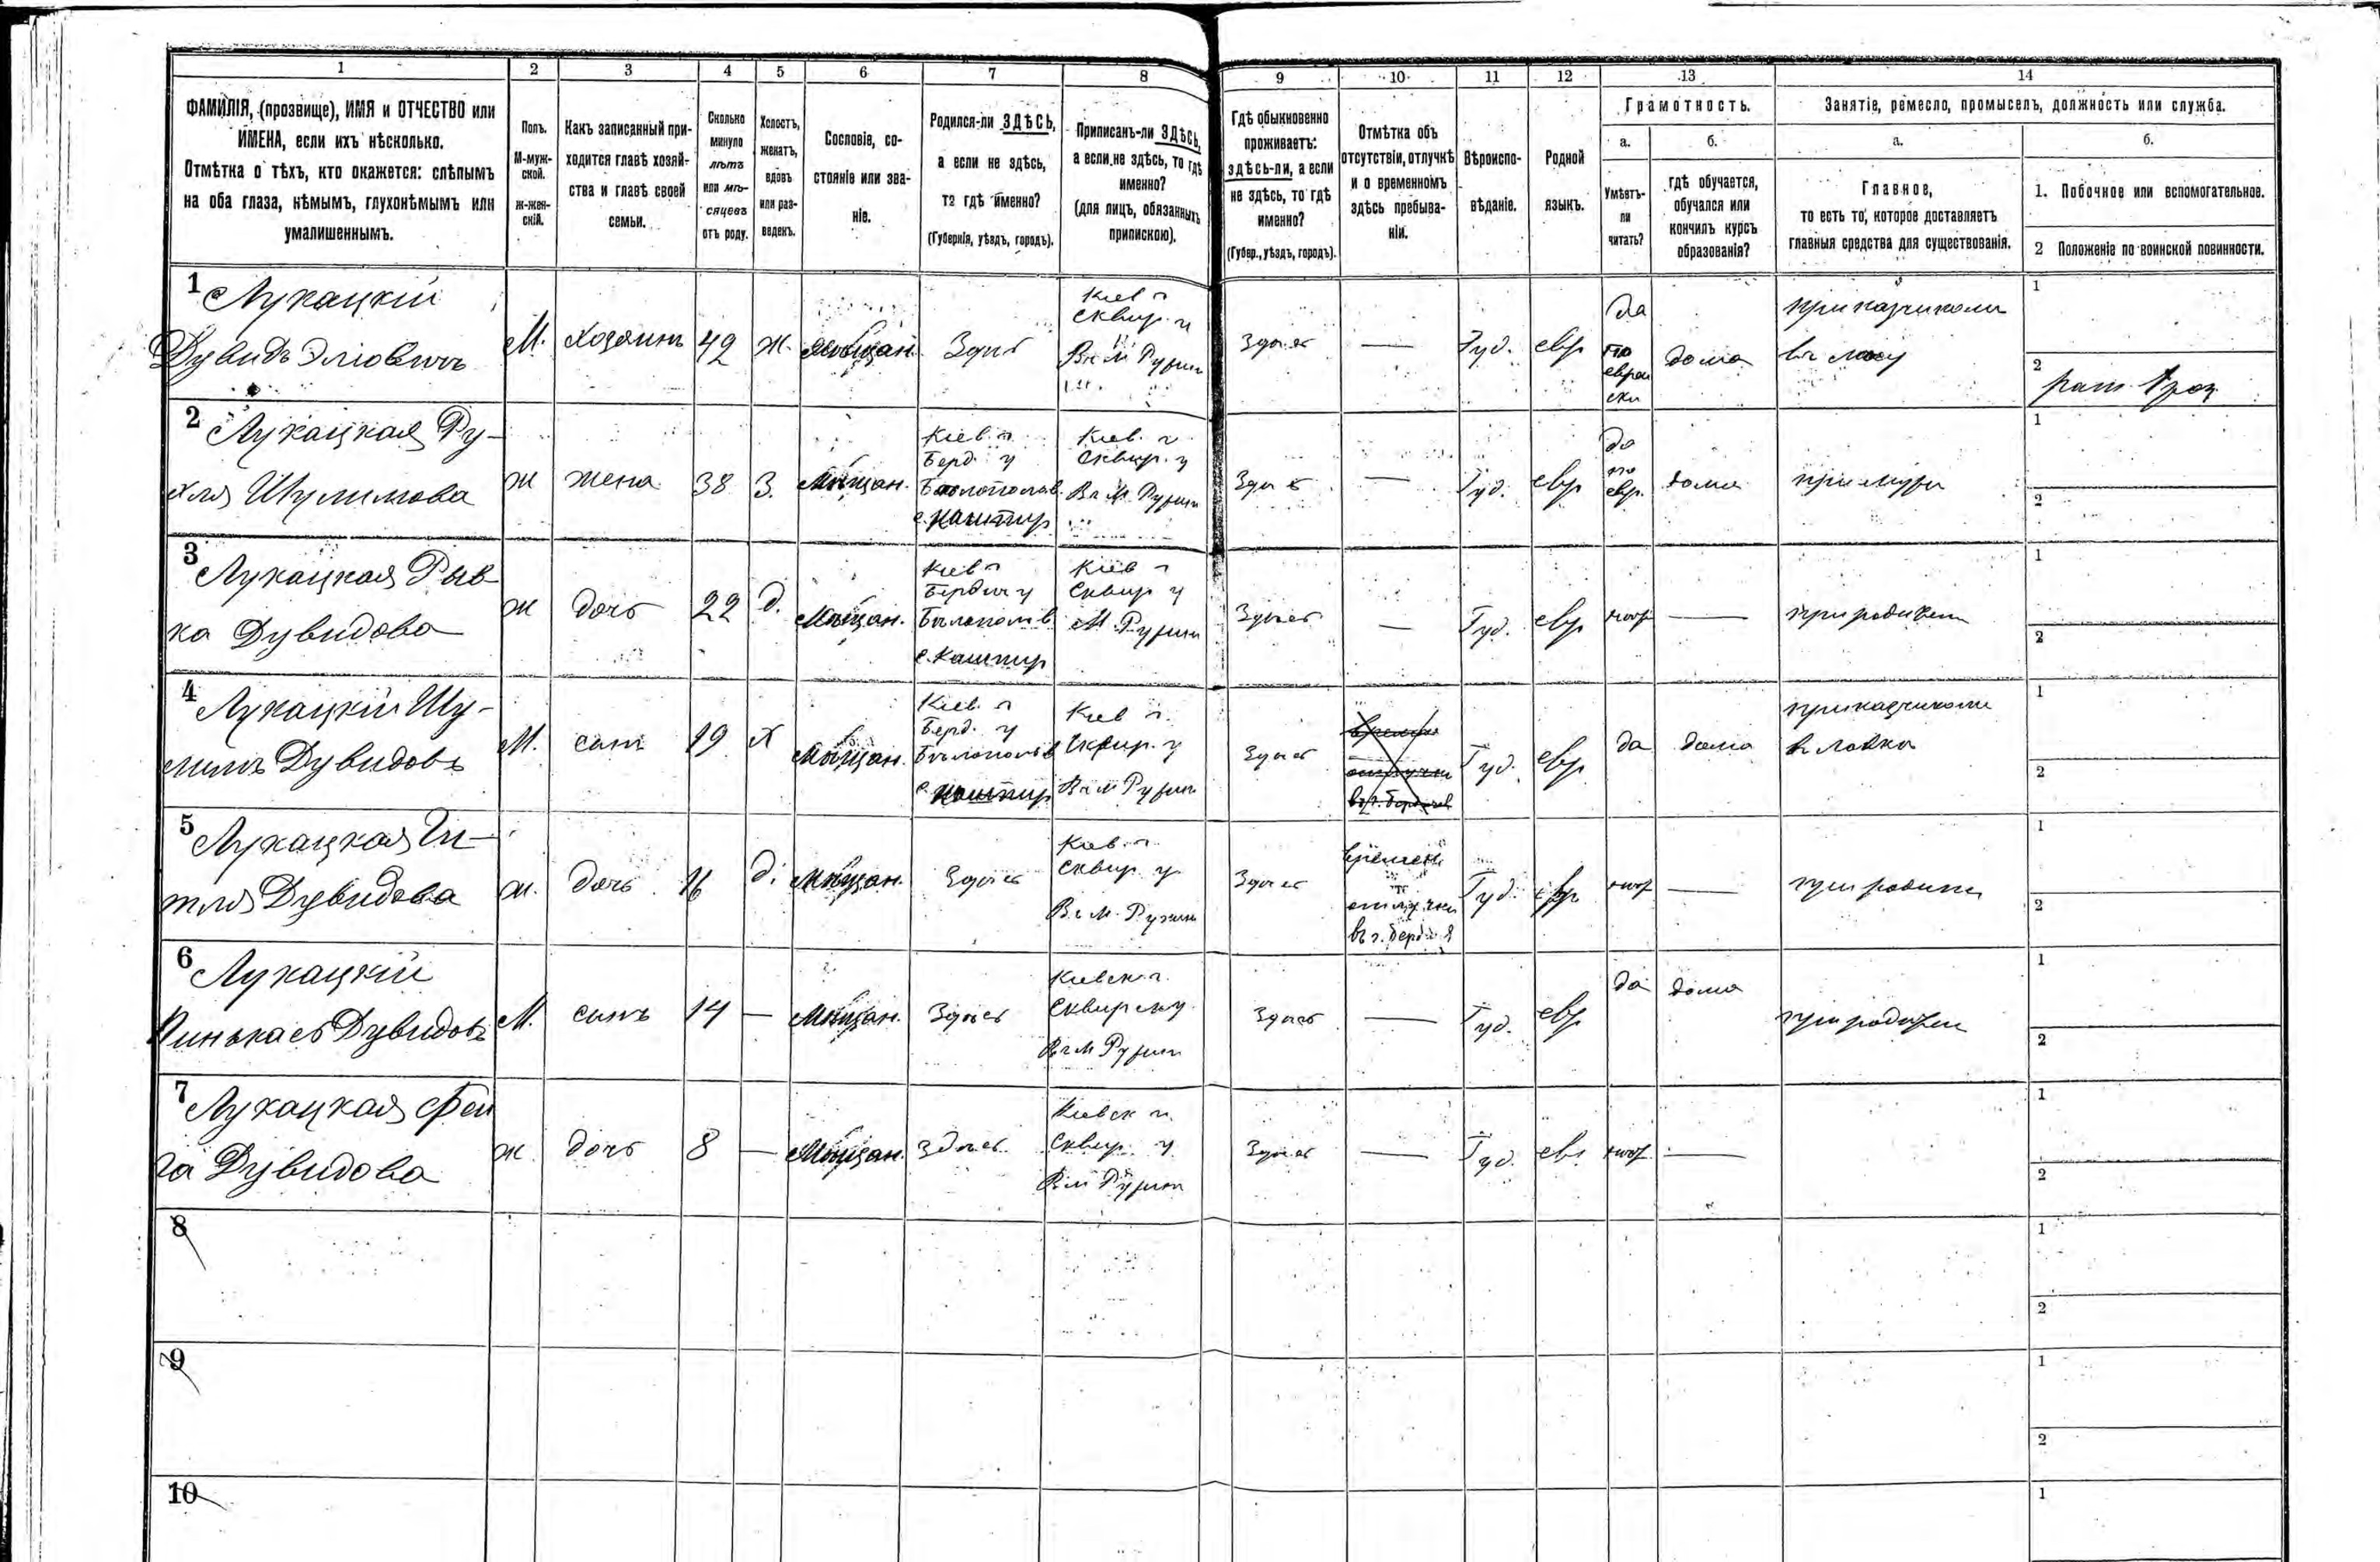 1 2 3 4 5 6 7 8 9 10 11 12 13 14
ФАМИЛІЯ, (прозвище), ИМЯ и ОТЧЕСТВО или
ИМЕНА, если ихъ нѣсколько.
Отмѣтка о тѣхъ, кто окажется: слѣпымъ
на оба глаза, нѣмымъ, глухонѣмымъ или
умалишеннымъ.
Полъ.
М-муж-
ской.
ж-жен-
скій.
Какъ записанный при-
ходится главѣ хозяй-
ства и главѣ своей
семьи.
Сколько
минуло
лѣтъ
или мѣ-
сяцевъ
отъ роду.
Холостъ,
женатъ,
вдовъ
или раз-
веденъ.
Сословіе, со-
стояніе или зва-
ніе.
Родился-ли ЗДѢСЬ,
а если не здѣсь,
то гдѣ именно?
(Губернія, уѣздъ, городъ).
Приписанъ-ли ЗДѢСЬ,
а если не здѣсь, то гдѣ
именно?
(для лицъ, обязанныхъ
припискою).
Гдѣ обыкновенно
проживаетъ:
здѣсь-ли, а если
не здѣсь, то гдѣ
именно?
(Губер., уѣздъ, городъ).
Отмѣтка объ
отсутствіи, отлучкѣ
и о временномъ
здѣсь пребыва-
ніи.
Вѣроиспо-
вѣданіе.
Родной
языкъ.
Грамотность.
а.
Умѣетъ-
ли
читать?
б.
гдѣ обучается,
обучался или
кончилъ курсъ
образованія?
Занятіе, ремесло, промыселъ, должность или служба.
а.
Главное,
то есть то, которое доставляетъ
главныя средства для существованія.
б.
1. Побочное или вспомогательное.
2 Положеніе по воинской повинности.
1 Лукацкій
Дувидъ Эліовичъ
М.
хозяинъ
42
ж.
Мѣщан.
Здѣсь
Кіев г
Сквир. у
Въ М Ружин
Здѣсь
—
Іуд.
евр
Да
по
еврей
ски
дома
приказчикомъ
въ лѣсу
1
2
2 Лукацкая Ру-
хля Шулимова
ж
жена
38
З.
Мѣщан.
Кіев. г
Берд. у
Бѣлополов
с. Кашпир
Кіев. г
Сквир. у
Въ М. Ружин
Здѣсь
—
Іуд.
евр
да
по
евр.
дома
при мужѣ
1
2
3 Лукацкая Рыв-
ка Дувидова
ж
дочь
22
д.
Мѣщан.
Кіев г
Бердич у
Бѣлополов
с. Кашпир
Кіев г
Сквир у
М. Ружин
Здѣсь
—
Іуд.
евр
нѣт
—
при родител
1
2
4 Лукацкій Шу-
лимъ Дувидовъ
М.
сынъ
19
х
Мѣщан.
Кіев. г
Берд. у
Бѣлополов
с. Кашпир
Кіев г.
Сквир. у
Въ М Ружин
Здѣсь
времен
отлучки
въ г. Бердичев
Іуд.
евр
да
дома
приказчикомъ
въ лавкѣ
1
2
5 Лукацкая Ги-
тля Дувидова
ж.
дочь
16
д.
Мѣщан.
Здѣсь
Кіев. г.
Сквир у
Въ М. Ружин
Здѣсь
времен
отлучки
въ г. Берд
Іуд.
евр
нѣт
—
при родител
1
2
6 Лукацкій
Пинькасъ Дувидовъ
М.
сынъ
14
—
Мѣщан.
Здѣсь
Кіевск г.
Сквирск у
Въ М Ружин
Здѣсь
—
Іуд.
евр
да
дома
при родител
1
2
7 Лукацкая Фей
га Дувидова
ж.
дочь
8
—
Мѣщан.
Здѣсь
Кіевск г.
Сквир. у
В М Ружин
Здѣсь
—
Іуд.
евр.
нѣт
—
1
2
8
1
2
9
1
2
10
1